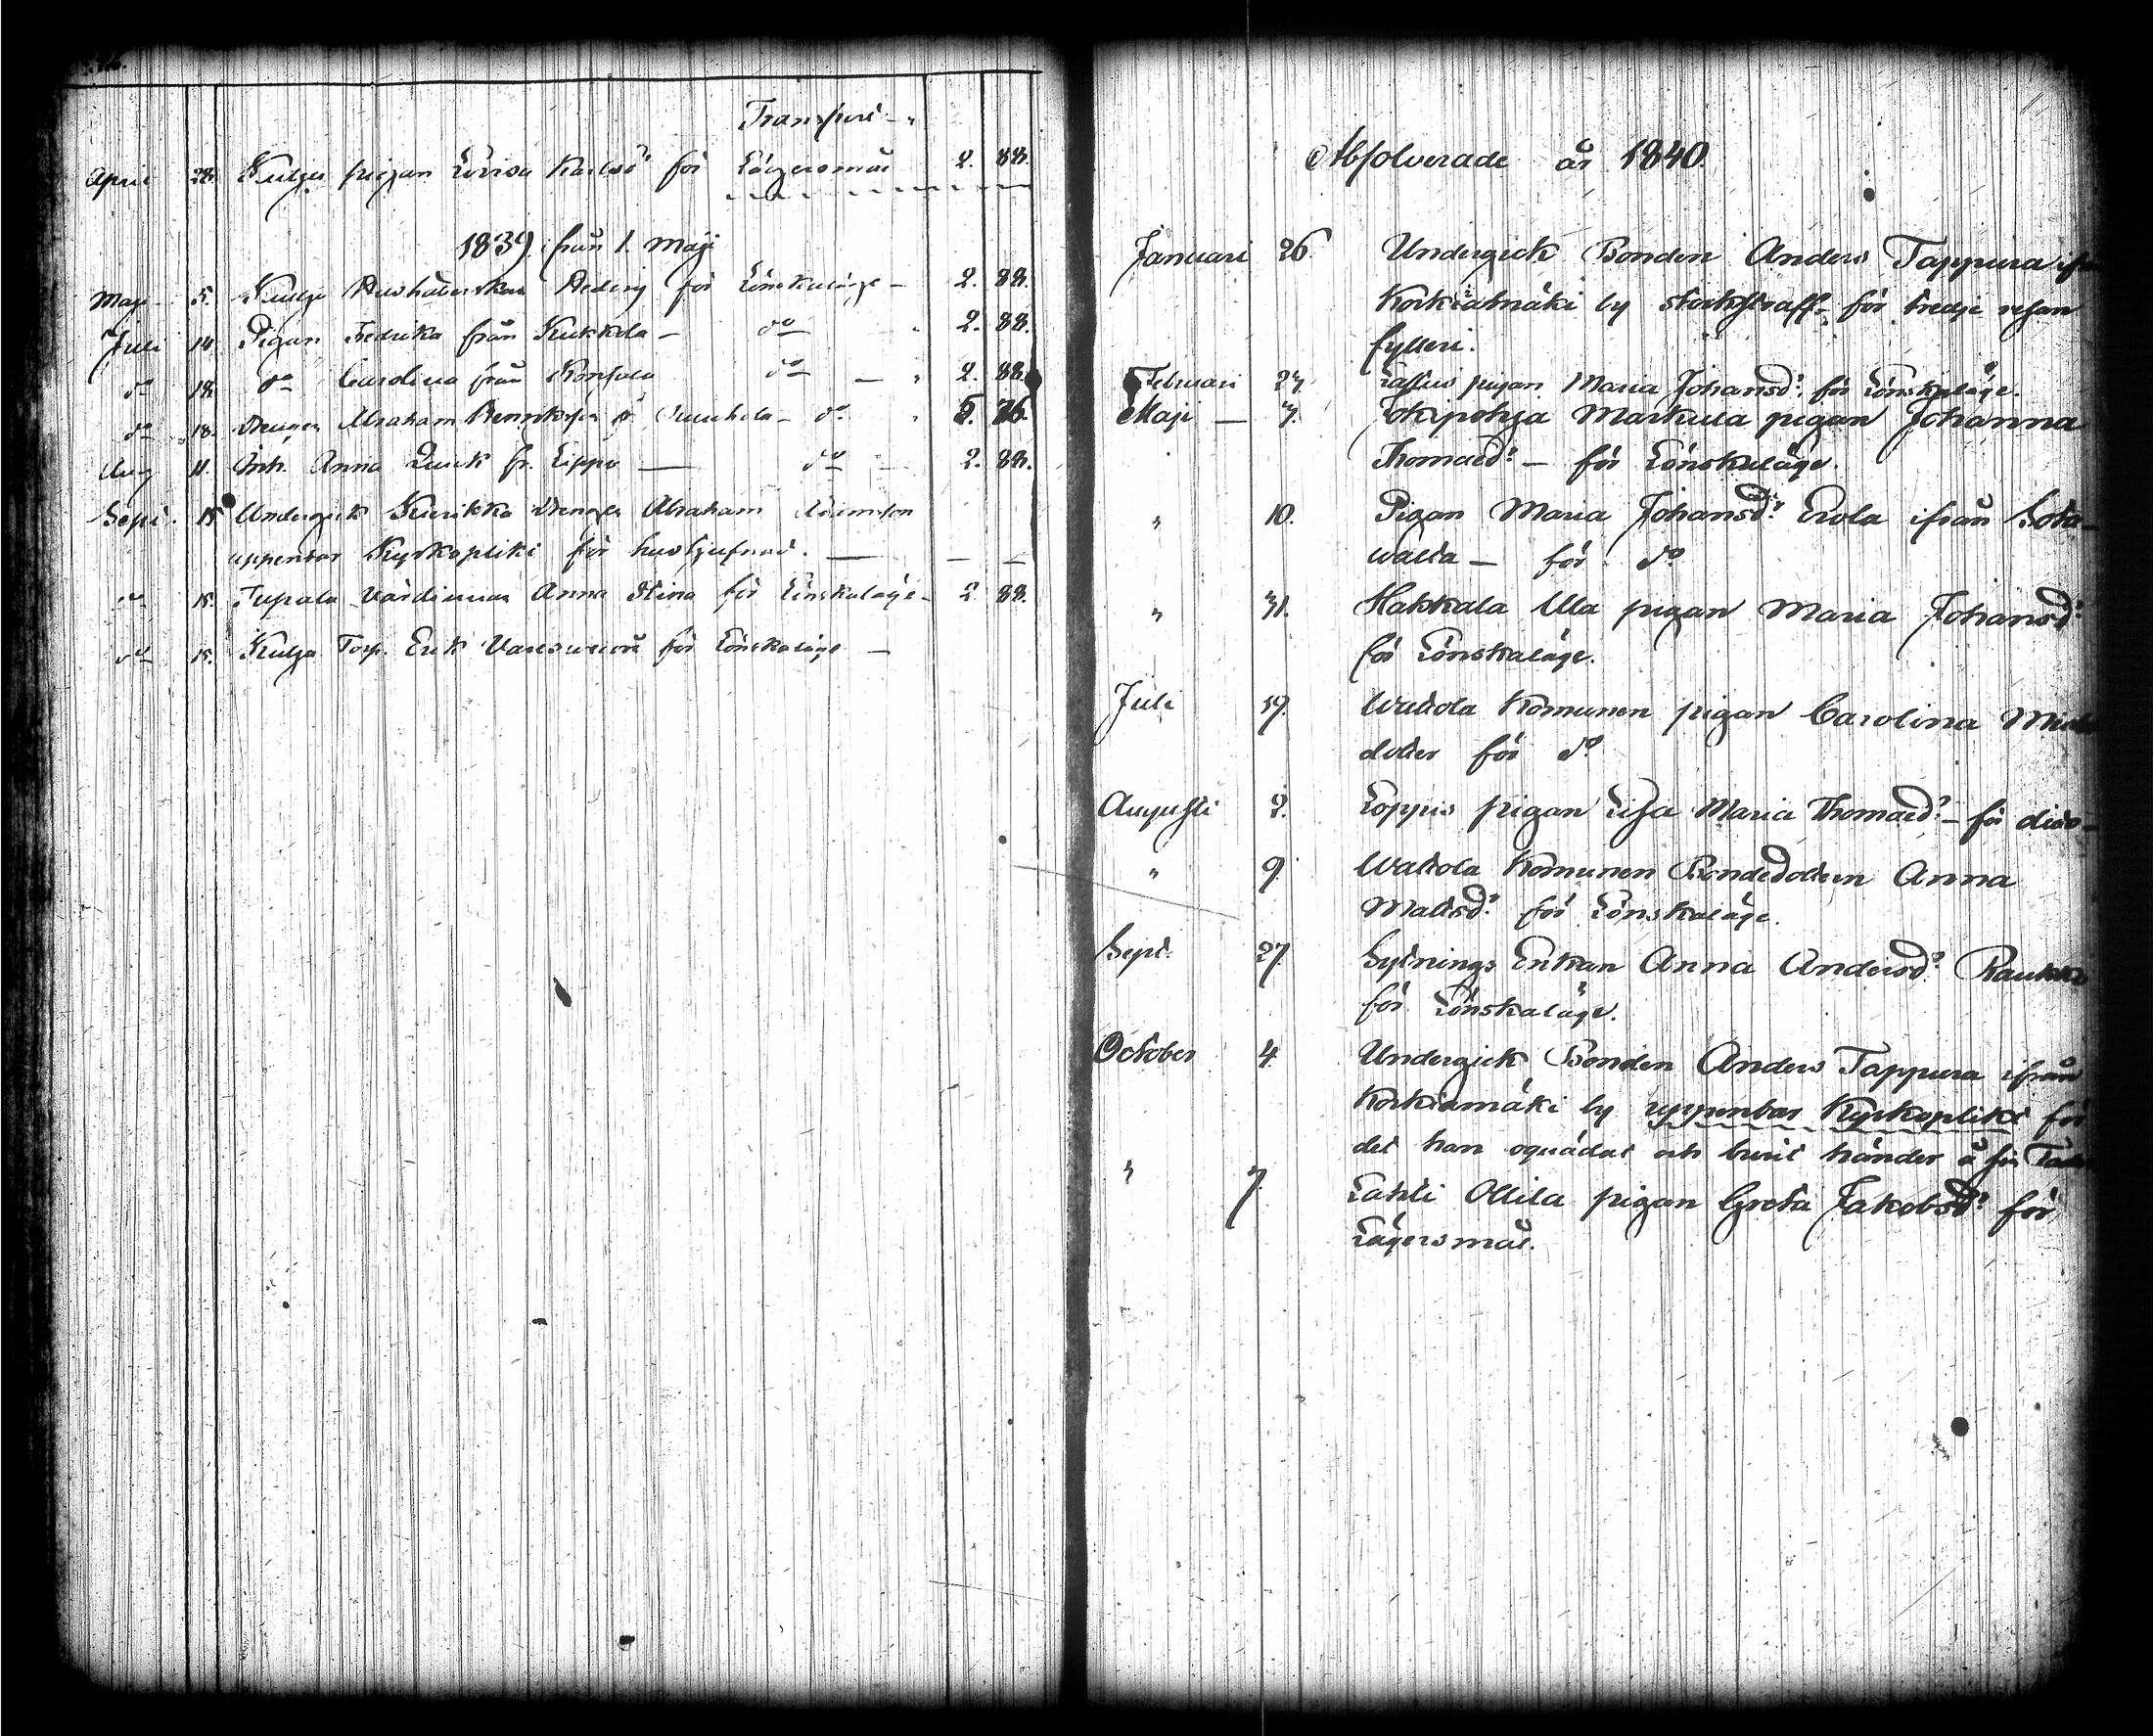 Transport
April 28. Kulju pigan Lovisa Karlsd? för Lägersmål 2. 88.
1839. från 1. Maji
Maji 5. Kulju för Lönskaläge 2. 88.
Juli 14. Pigan Fredrika från Kukkola do 2. 88.
do 18. do Carolina från do 2. 88.
do 18. Drengen Abraham do 5. 76.
Aug 11. Inh. Anna fr. Lippo do 2. 88.
Sept. 15 Undergick Kurikka Drengen Abraham
uppenbar Kyrkoplikt för
do 15. Tupala Värdinnan Anna Stina för Lönskaläge 2 88.
do 15. Kulju Torp. Erik för Lönskaläge
Absolverade år 1840.
Januari 26 Undergick Bonden Anders Tappura ifrån
Korkiamäki by stockstraff för tredje resan
fylleri.
Februari 27. pigan Maria Johansd? för Lönskaläge.
Maji 7. Jokipohja Markula pigan Johanna
Thomasd? för Lönskaläge.
" 10. Pigan Maria Johansd? Erola ifrån Sota
valta för do
" 31. Hakkala Ulla pigan Maria Johansd?
för Lönskaläge.
Juli 19. Wallola Komunen pigan Carolina
dotter för do
Augusti 2. Loppis pigan Lisa Maria Thomasd? för dito
" 9. Wallola Komunen Bondedottern Anna
Mattsd? för Lönskaläge.
Sept. 27. Sytnings Enkan Anna Andersd? Raukko
för Lönskaläge.
October 4. Undergick Bonden Anders Tappura ifrån
Korkiamäki by uppenbar Kyrkoplikt för
det han oquädat och burit händer å sin Fader
" 7. Lahti Ollila pigan Greta Jakobsd? för
Lägersmål.